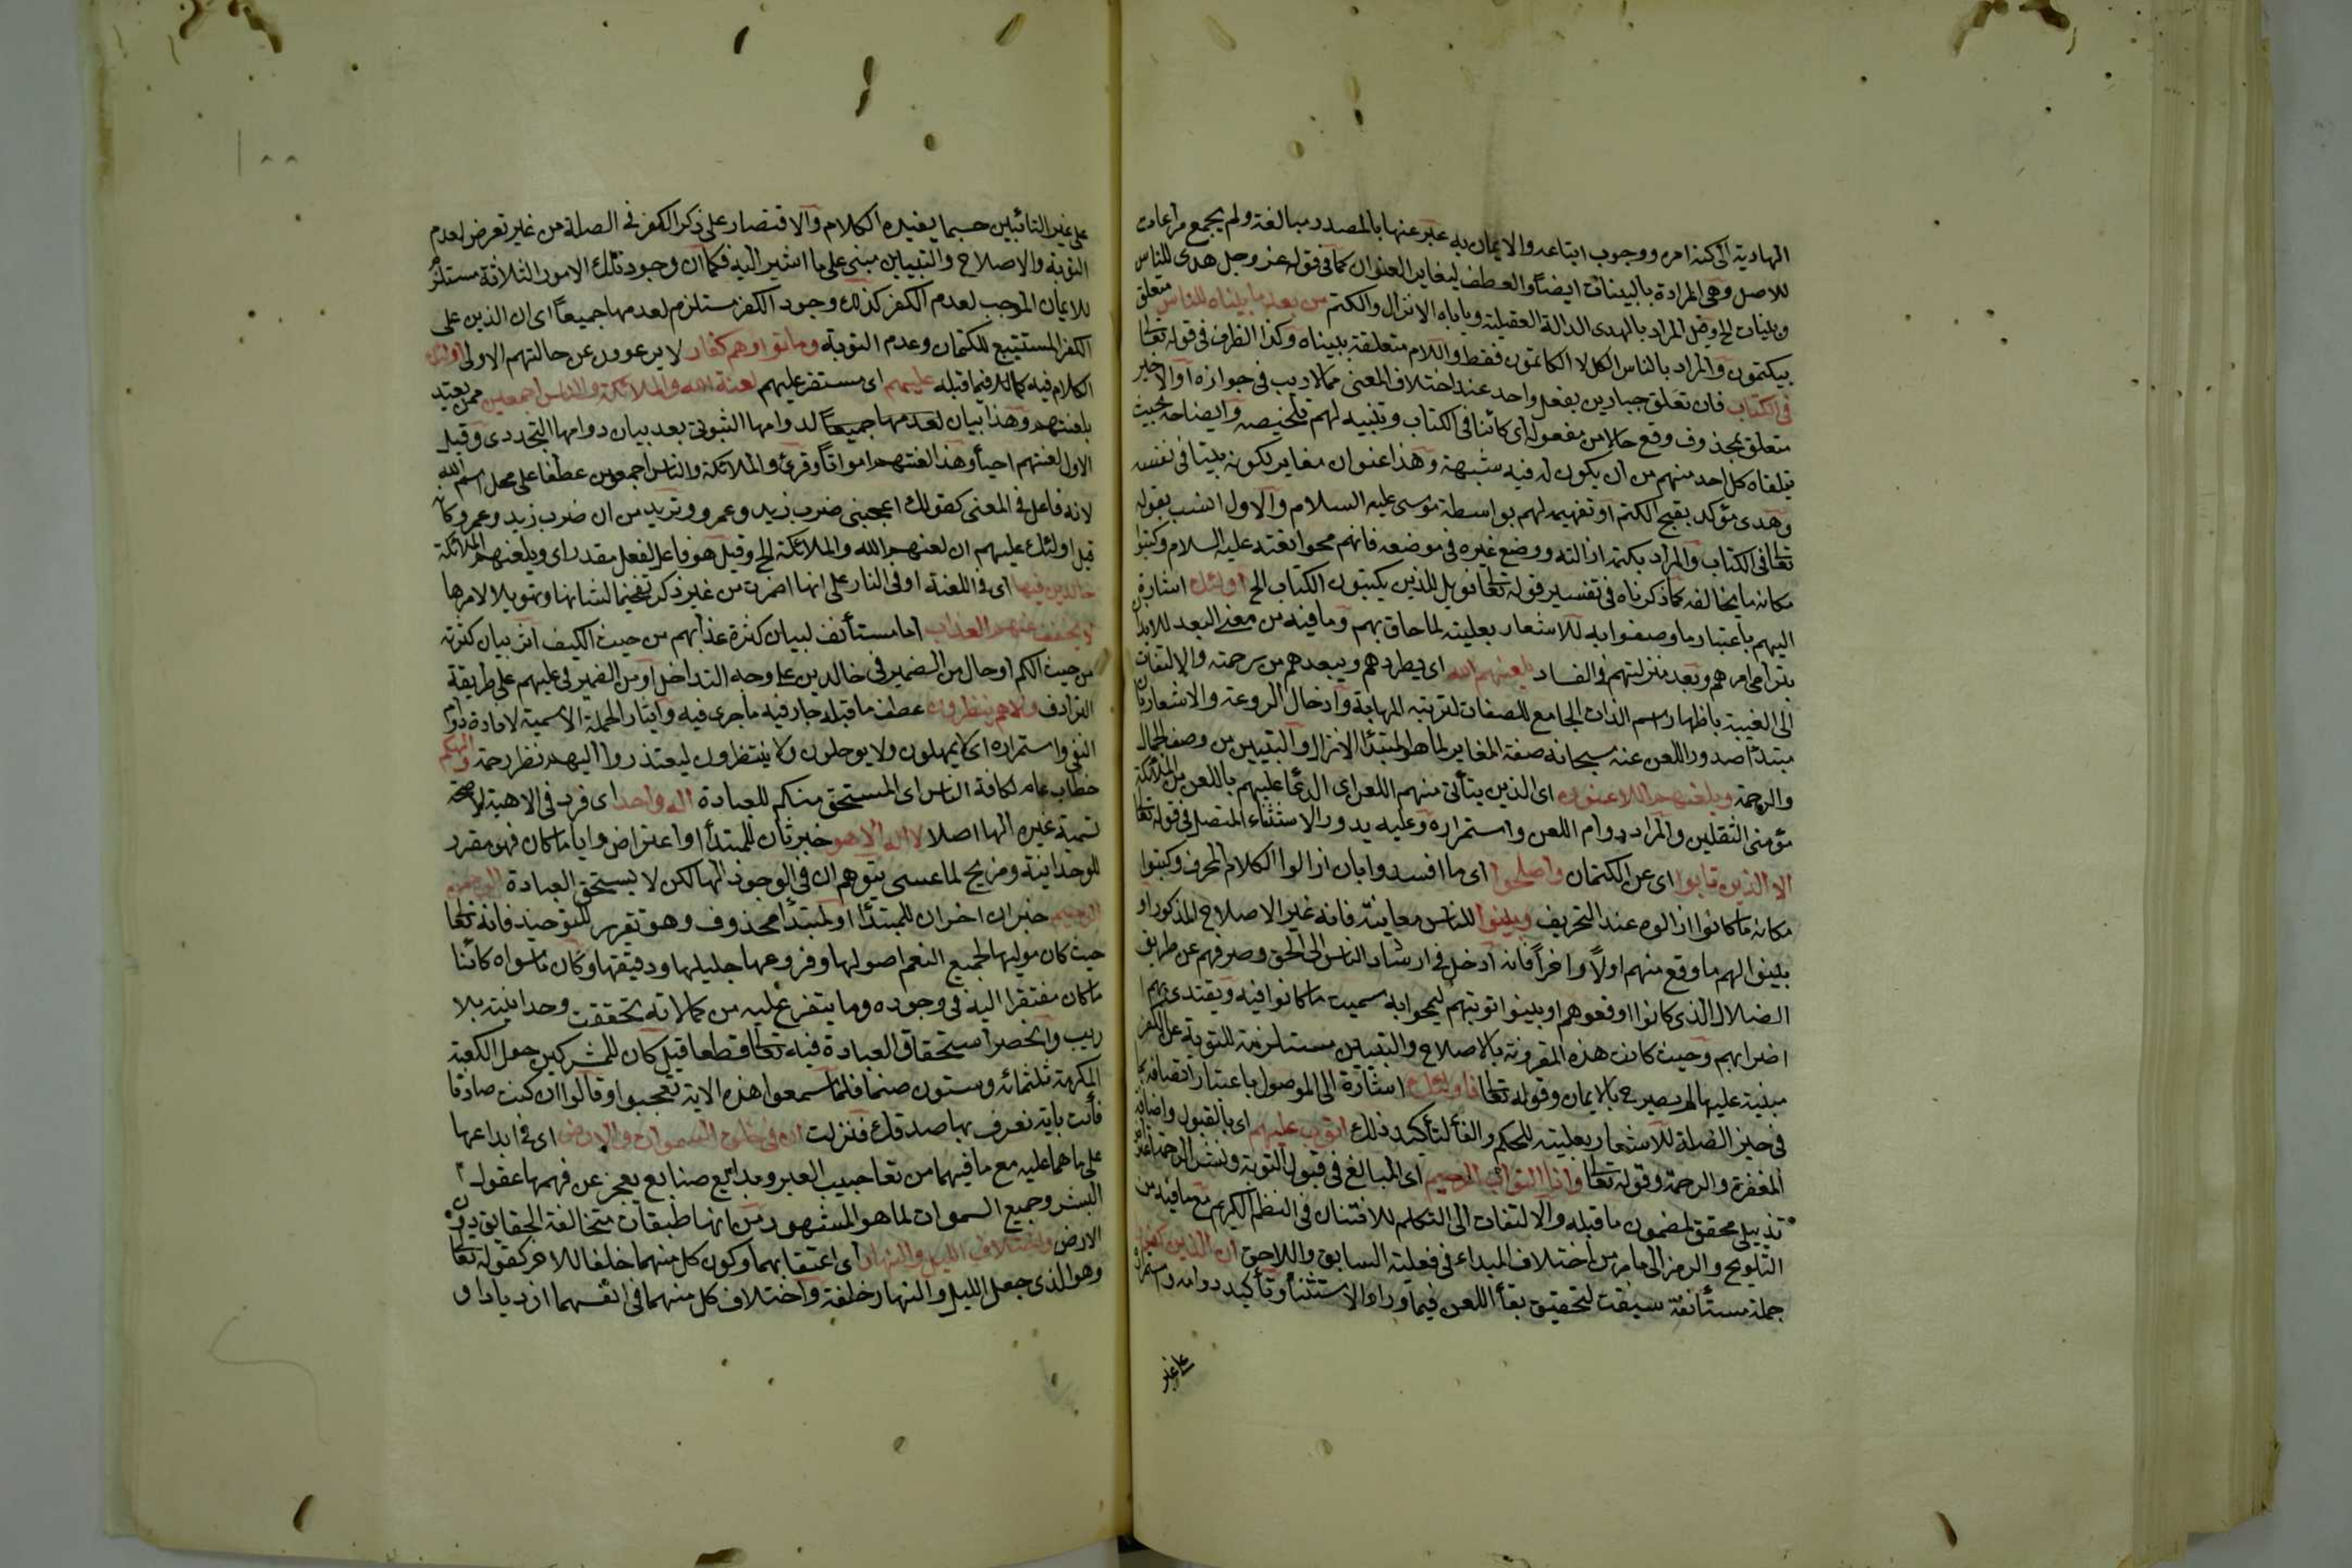 الهادية الى كنه امره ووجوب اتباعه والايمان به عبر عنها بالمصدر مبالغة ولم يجمع مراعات
للاصل وهى المرادة بالبينات ايضًا والعطف لتغاير العنوان كما فى قوله عز وجل هدى للناس
وبينات الخ وقيل المراد بالهدى الدالة العقلية ويأباه الانزال والكتم من بعد ما بيناه للناس متعلق
بيكتمون والمراد بالناس الكل لا الكاتمون فقط واللام متعلقة ببيناه وكذا الظرف فى قوله تعالى
فى الكتاب فان تعلق جارين بفعل واحد عند اختلاف المعنى مما لا ريب فى جوازه او الاخير
متعلق بمحذوف وقع حالا من مفعوله اى كائنا فى الكتاب وتبيينه لهم تلخيصه وايضاحه بحيث
يتلقاه كل احد منهم من ان يكون له فيه شبهة وهذا عنوان مغاير لكونه بينا فى نفسه
وهدى مؤكد بقبح الكتم او تفهيمه لهم بواسطة موسى عليه السلام والاول انسب بقوله
تعالى فى الكتاب والمراد بكتمه ازالته ووضع غيره فى موضعه فانهم محوا نعته عليه السلام وكتبوا
مكانه ما يخالفه كما ذكرناه فى تفسير قوله تعالى فويل للذين يكتبون الكتاب الخ اولئك اشارة
اليهم باعتبار ما وصفوا به للاشعار بعليته لما حاق بهم وما فيه من معنى البعد للايذان
بترامى امرهم وبعد منزلتهم فى الفساد يلعنهم الله اى يطردهم ويبعدهم من رحمته والالتفات
الى الغيبة باظهار اسم الذات الجامع للصفات لتربية المهابة وادخال الروعة والاشعار بان
مبتدأ صدور اللعن عنه سبحانه صفة المغاير لما هو المبتدئا الانزال والتبيين من وصف الجمال
والرحمة ويلعنهم اللاعنون اى الذين يتأتى منهم اللعن اى الدعا عليهم باللعن من الملائكة
مؤمنى الثقلين والمراد دوام اللعن واستمراره وعليه يدور الاستثناء المتصل فى قوله تعالى
الا الذين تابوا اى عن الكتمان واصلحوا اى ما افسدوا بان ازالوا الكلام المحرف وكتبوا
مكانه ما كانوا ازالوه عند التحريف وبينوا للناس معانيه فانه غير الاصلاح المذكور او
بينوا لهم ما وقع منهم اولًا واخرًا فانه ادخل فى ارشاد الناس الى الحق وصرفهم عن طريق
الضلال الذى كانوا اوقعوهم او بينوا توبتهم ليمحوا به سمت ما كانوا فيه ويقتدى بهم
اضرابهم وحيث كانت هذه المقرونة بالاصلاح والتبيين مستلزمة للتوبة عن الكفر
مبنية عليها لم يصرح بالايمان وقوله تعالى فاولئك اشارة الى الموصول باعتبار اتصافه بما
فى حيز الصلة للاشعار بعليته للحكم والفأ لتأكيد ذلك اتوب عليهم اى بالقبول وافاضة
المغفرة والرحمة وقوله تعالى وانا التواب الرحيم اى المبالغ فى قبول التوبة ونشر الرحمة اعتراض
تذييلى محقق لمضمون ما قبله والالتفات الى التكلم للافتنان فى النظم الكريم مع ما فيه من
التلويح والرمز الى ما مر من اختلاف المبداء فى فعليه السابق واللاحق ان الذين كفروا
جملة مستأنفة سيقت لتحقيق بقأ اللعن فيما وراء الاستثنأ وتأكيد دوامه واستمراره
على غير
على غير التائبين حسبما يفيده الكلام والاقتصار على ذكر الكفر فى الصلة من غير تعرض لعدم
التوبة والاصلاح والتبيين مبنى على ما اشير اليه فكما ان وجود تلك الامور الثلاثة مستلزم
للايمان الموجب لعدم الكفر كذلك وجود الكفر مستلزم لعدمها جميعًا اى ان الذين على
الكفر المستتبع للكتمان وعدم التوبة وماتوا وهم كفار لا يرعوون عن حالتهم الاولى اولئك
الكلام فيه كما فيما قبله عليهم اى مستقر عليهم لعنة الله والملائكة والناس اجمعين ممن يعتد
بلعنتهم وهذا بيان لعدمها جميعًا لدوامها الثبوتى بعد بيان دوامها التجددى وقيل
الاول لعنتهم احيأ وهذا لعنتهم امواتًا وقرئ والملائكة والناس اجمعون عطفا على محل اسم الله
لانه فاعل فى المعنى كقولك اعجبنى ضرب زيد وعمرو وتريد من ان ضرب زيد وعمرو كانه
قيل اولئك عليهم ان لعنهم الله والملائكة الخ وقيل هو فاعل لفعل مقدر اى ويلعنهم الملائكة
خالدين فيها اى فى اللعنة او فى النار على انها اضمرت من غير ذكر تفخيما لشانها وتهويلا لامرها
لا يخفف عنهم العذاب اما مستأنف لبيان كثرة عذابهم من حيث الكيف اثر بيان كثرته
من حيث الكم او حال من الضمير فى خالدين على وجه التداخل او من الضمير فى عليهم على طريقة
الترادف ولا هم ينظرون عطف ما قبله جار فيه ما جرى فيه وايثار الجملة الاسمية لافادة دوام
النفى واستمراره اى لا يمهلون ولا يوجلون ولا ينتظرون ليعتذروا اليهم نظر رحمة والهكم
خطاب عام لكافة الناس اى المستحق منكم للعبادة اله واحد اى فرد فى الالهية لا صحة
تسمية غيره الها اصلا لا اله الا هو خبر ثان للمبتدأ او اعتراض وايا ما كان فهو مقرر
للوحدانية ومزيح لما عسى يتوهم ان فى الوجود الها لكن لا يستحق العبادة الرحمن
الرحيم خبران اخران للمبتدأ او لمبتدأ محذوف وهو تقرير للتوحيد فانه تعالى
حيث كان موليها لجميع النعم اصولها وفروعها جليلها ودقيقها وكان ما سواه كائنا
ما كان مفتقرا اليه فى وجوده وما يتفرع عليه من كمالاته تحققت وحدانيته بلا
ريب وانحصر استحقاق العبادة فيه تعالى قطعا قيل كان للمشركين حول الكعبة
المكرمة ثلثمائه وستون صنما فلما سمعوا هذه الاية تعجبوا وقالوا ان كنت صادقا
فأت باية نعرف بها صدقك فنزلت ان فى خلق السموات والارض اى فى ابداعها
على ما هما عليه مع ما فيهما من تعاجيب العبر وبدايع صنايع يعجز عن فهمها عقول
البشر وجميع السموات لما هو المشهور من انها طبقات متخالفة الحقايق دون
الارض واختلاف الليل والنهار اى اعتقابهما وكون كل منهما خلفا للاخر كقوله تعالى
وهو الذى جعل الليل والنهار خلفة واختلاف كل منهما فى انفسهما ازديادا و